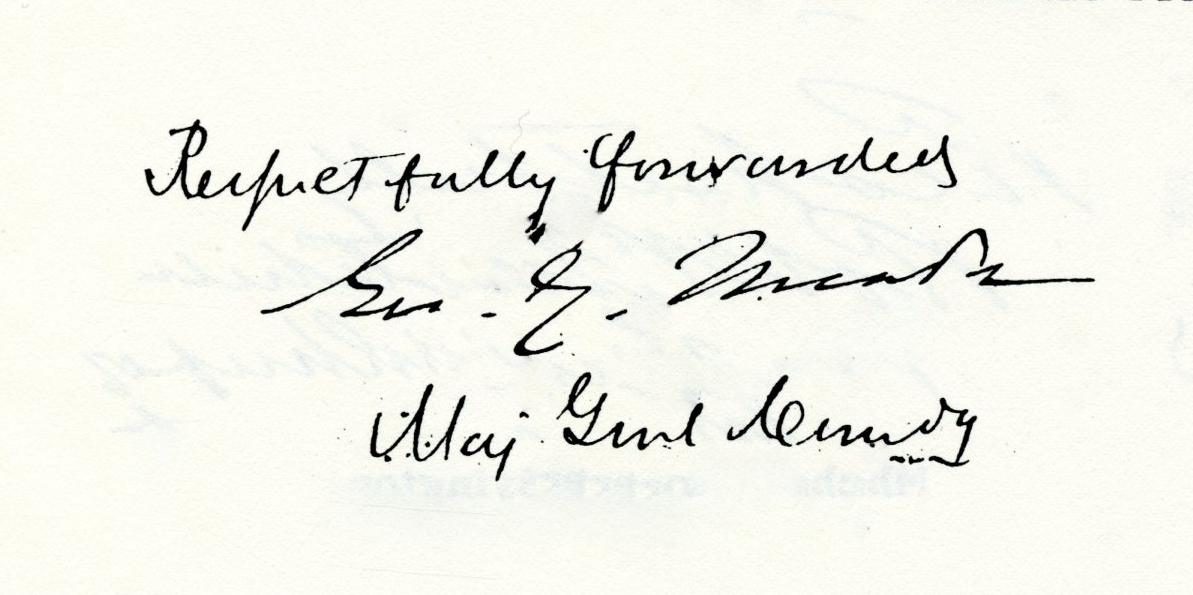 Respectfully forwarded
Geo. G. Meade
Maj Genl Comdg